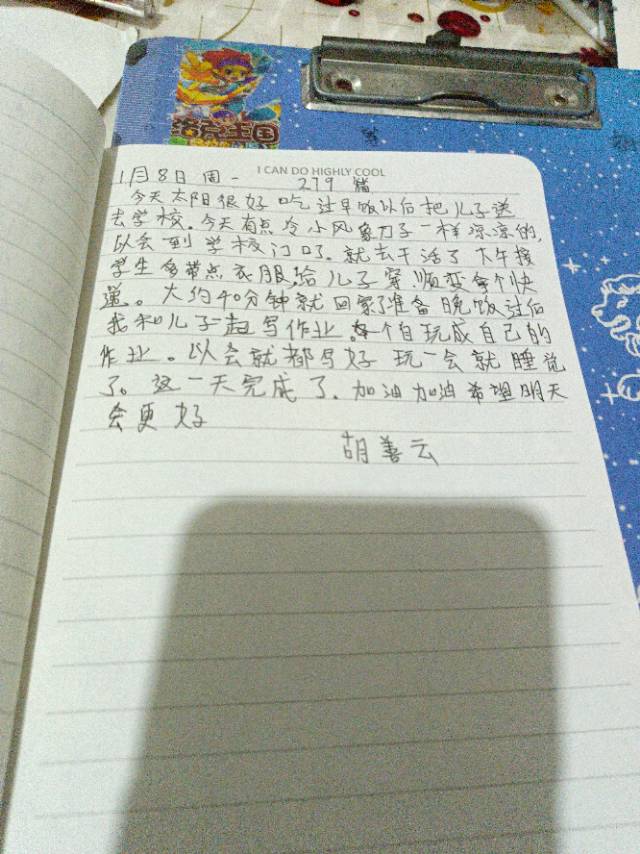 洛克王国
I CAN DO HIGHLY COOL
1月8日 周一 279 篇
今天太阳很好 吃过早饭以后把儿子送
去学校。今天有点冷小风象刀子一样凉凉的,
以会到学校门口了. 就去干活了 下午接
学生多带点衣服,给儿子穿 顺变拿个快
递。大约40分钟就回家了准备晚饭过后
我和儿子一起写作业。各个自玩成自己的
作业。以会就都写好 玩一会就睡觉
了。这一天完成了. 加油加油希望明天
会更好
胡善云